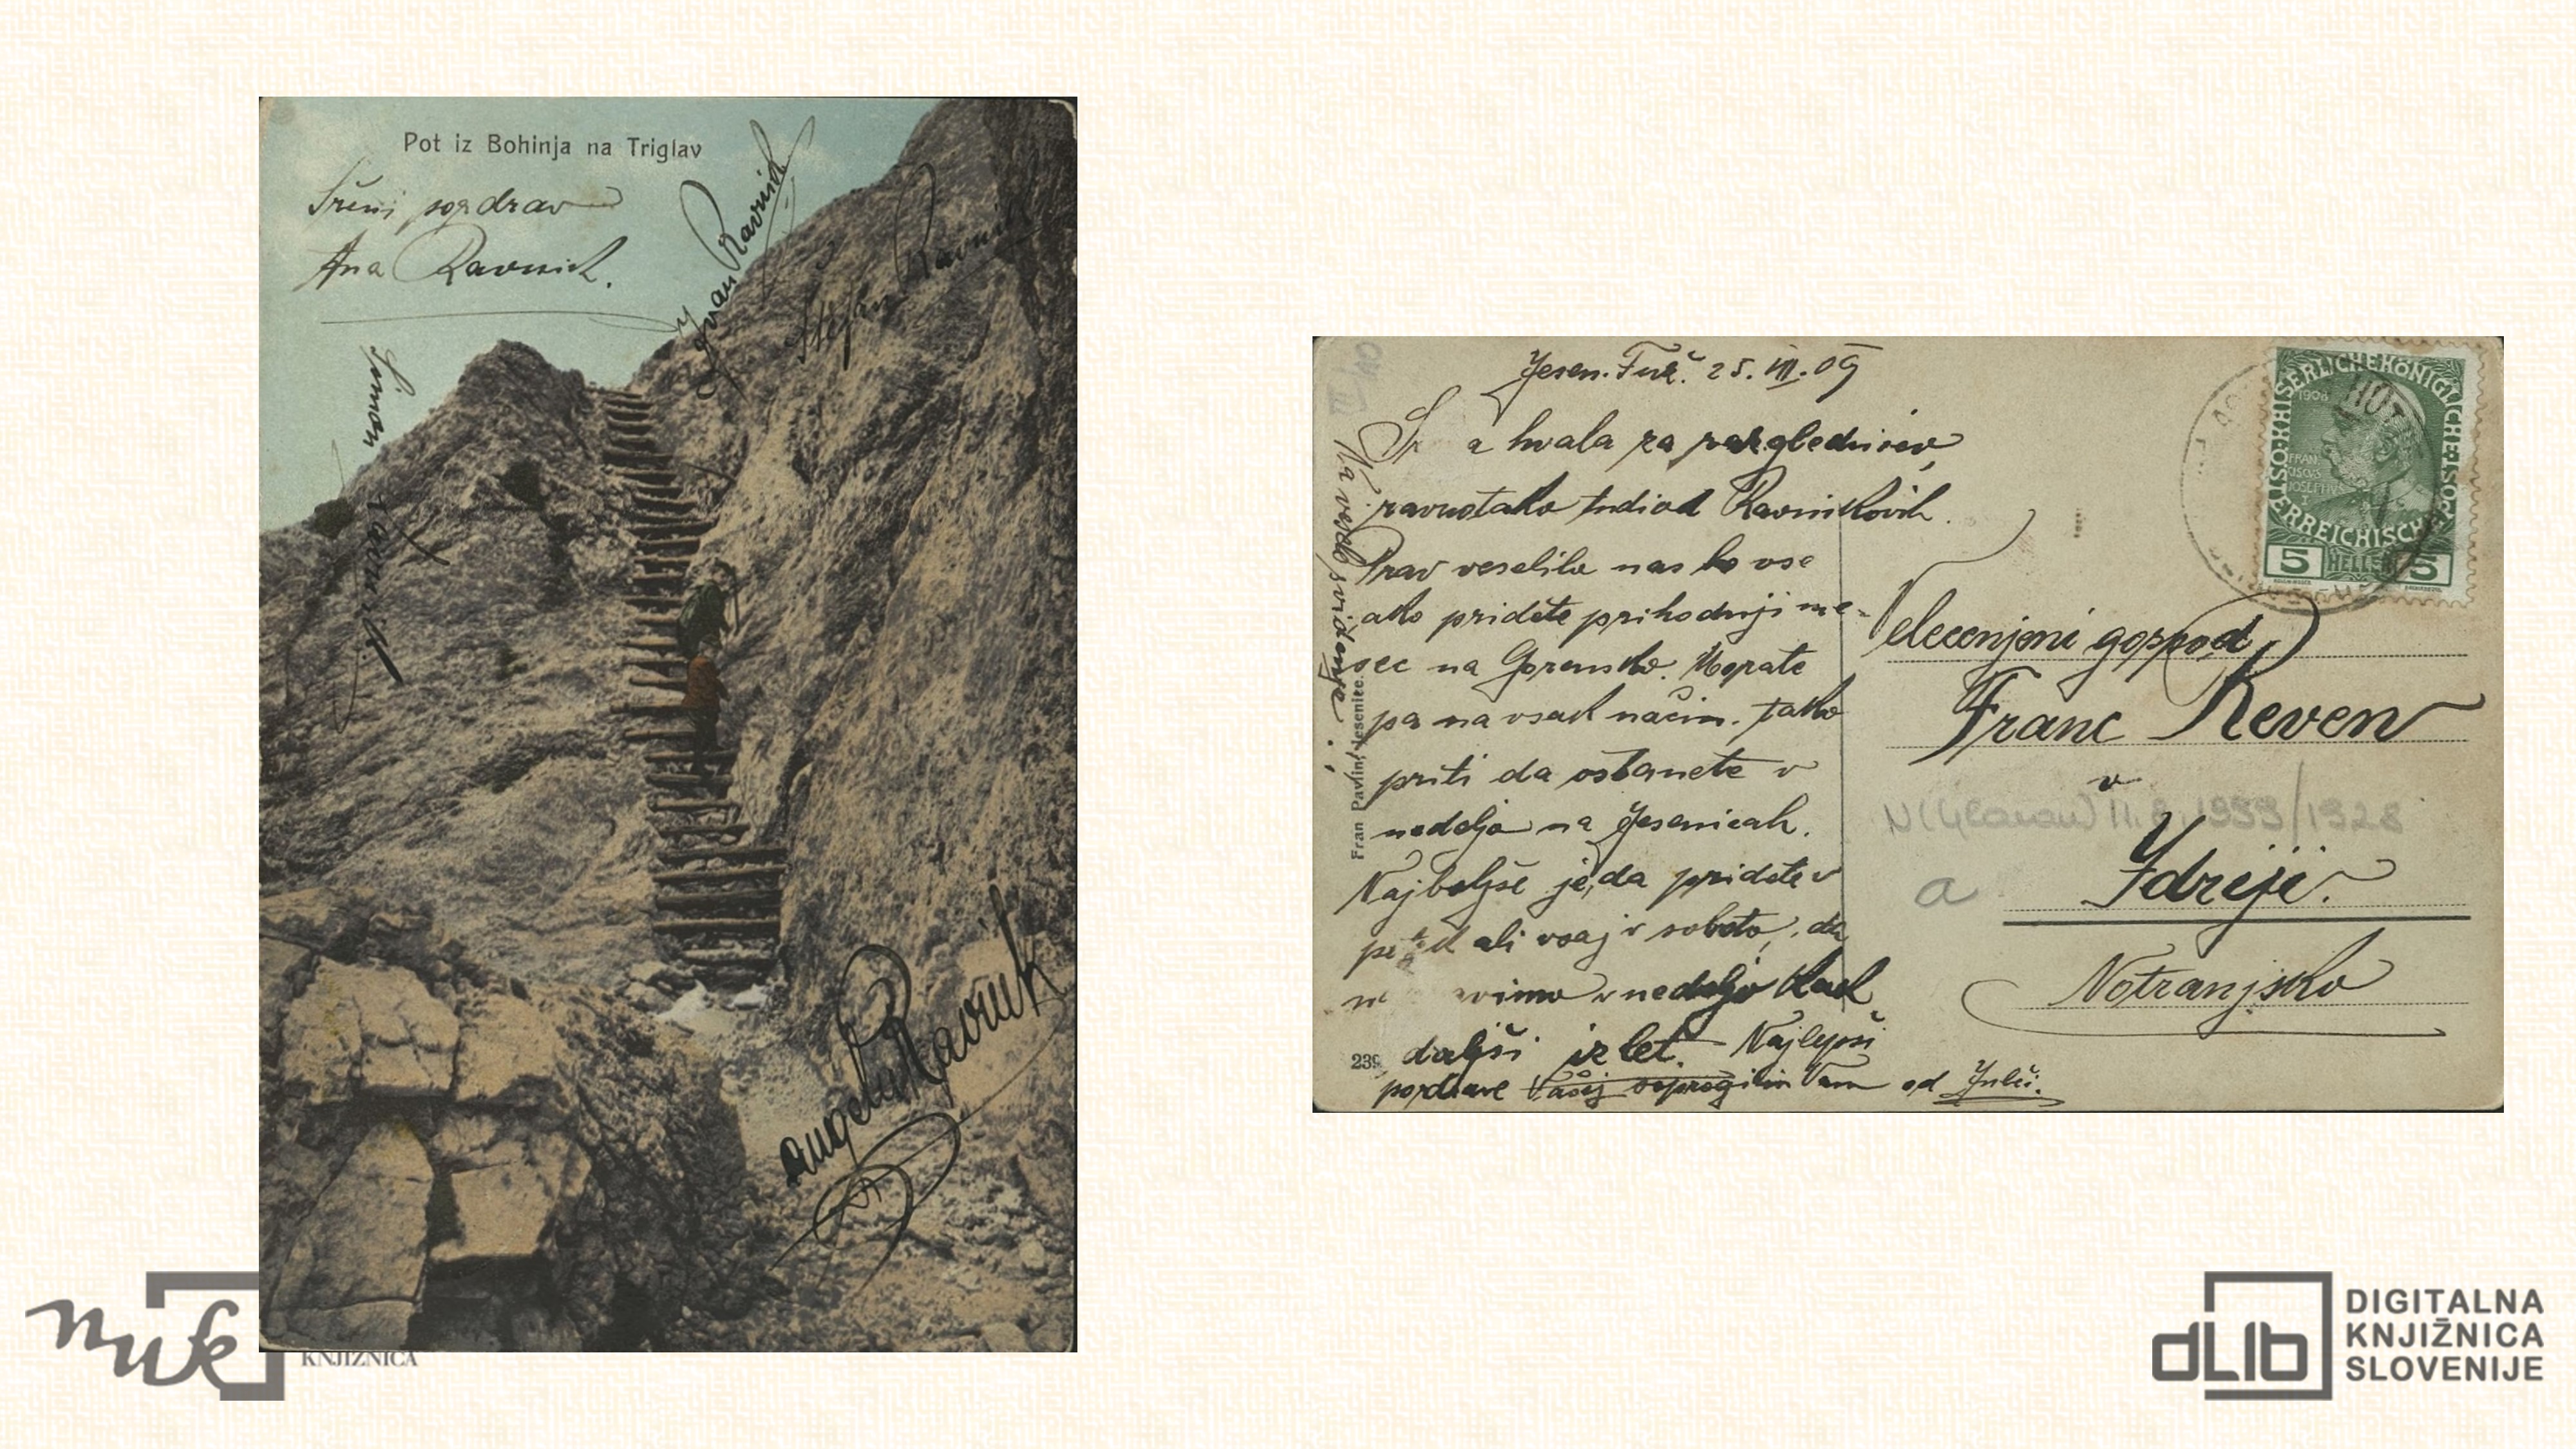 Pot iz Bohinja na Triglav
Srčni pozdrav
Ana Ravnik.
Ivan Ravnik
Štefan Ravnik
Simon Ravnik
Angela Ravnik
Jesen. Fuž. 25. VII. 09
a hvala za razglednico,
ravnotako tudi od Ravnikovih.
Prav veselilo nas bo vse
ako pridete prihodnji me-
sec na Gorensko. Morate
pa na vsak način. tako
priti da ostanete v
nedeljo na Jesenicah.
Najboljše je, da pridete v
petek ali vsaj v soboto, da
v nedeljo kak
daljši izlet. Najlepši
pozdrave Vašej soprogi in Vam od Julči.
Na veselo svidenje!
Fran Pavlin, Jesenice.
239
1908
KAISERLICHE KÖNIGLICHE
ÖSTERREICHISCHE POST
FRAN
CISCUS
JOSEPHUS
I
5 HELLER 5
Velecenjeni gospod
Franc Reven
v
11. 8. 1959/1928
Idriji.
a
Notranjsko
nuk
KNJIŽNICA
dLib
DIGITALNA
KNJIŽNICA
SLOVENIJE